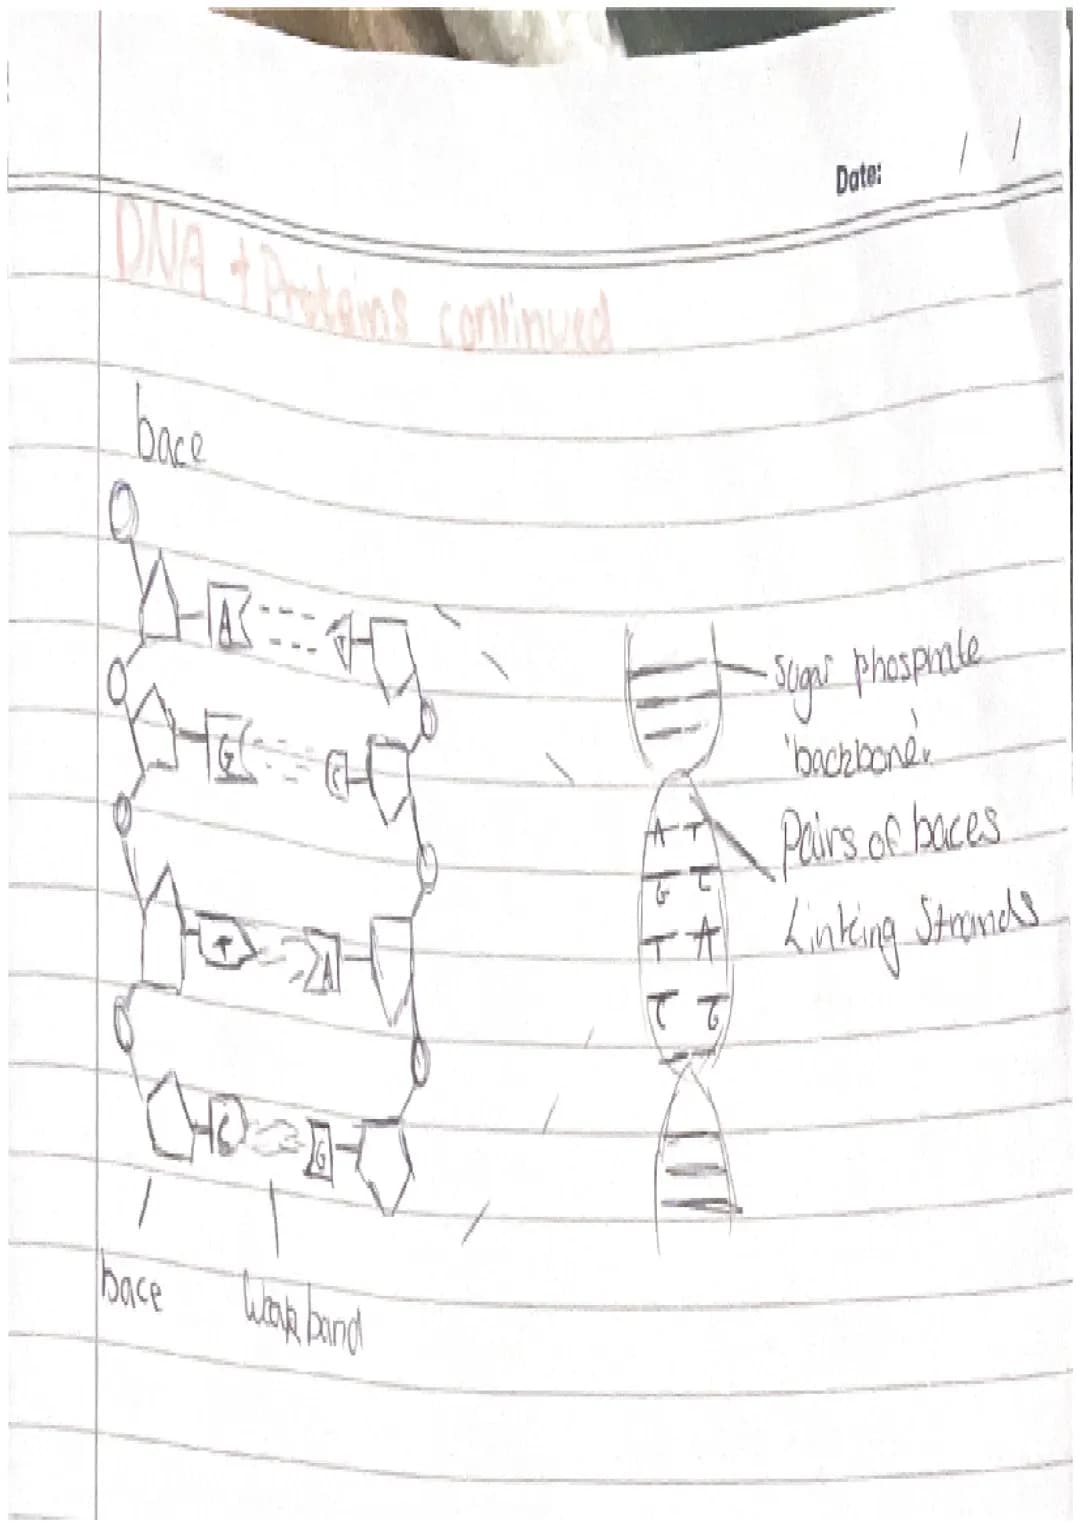 Date: / /
DNA + Proteins continued
bace
A T
G C
T A
C G
bace
Weak band
Sugar phosphate
'backbone'
Pairs of baces
Linking Strands
A T
G C
T A